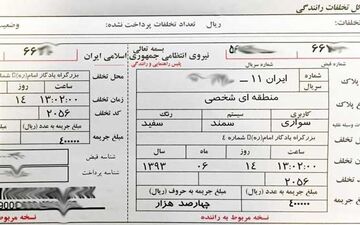 ئل تخلفات رانندگی
تخلفات: ریال تعداد تخلفات پرداخت نشده: وضعی
بسمه تعالی
نیروی انتظامی جمهوری اسلامی ایران
پلیس راهنمایی و رانندگی
۶۶ شماره قبض
شماره سریال
۶۶۱ شماره قبض
پلاک ایران ۱۱ ـ شماره
منطقه ای شخصی
کاربری سیستم رنگ
سواری سمند سفید
بزرگراه یادگار امام(ره)D شماره ۴
ساعت روز ماه سال
۱۳:۰۲:۰۰ ۱۴ ۰۶ ۱۳۹۳
۲۰۵۶
مبلغ جریمه به عدد (ریال) مبلغ جریمه به حروف (ریال)
۴۰۰۰۰۰ چهارصد هزار
نسخه مربوط به راننده
محل تخلف بزرگراه یادگار امام(ره)D شمار
ساعت روز
زمان تخلف ۱۳:۰۲:۰۰ ۱۴
کد تخلف ۲۰۵۶
مبلغ جریمه به عدد (ریال)
جریمه ۴۰۰۰۰۰
شناسه قبض
شناسه پرداخت
نسخه مربوط